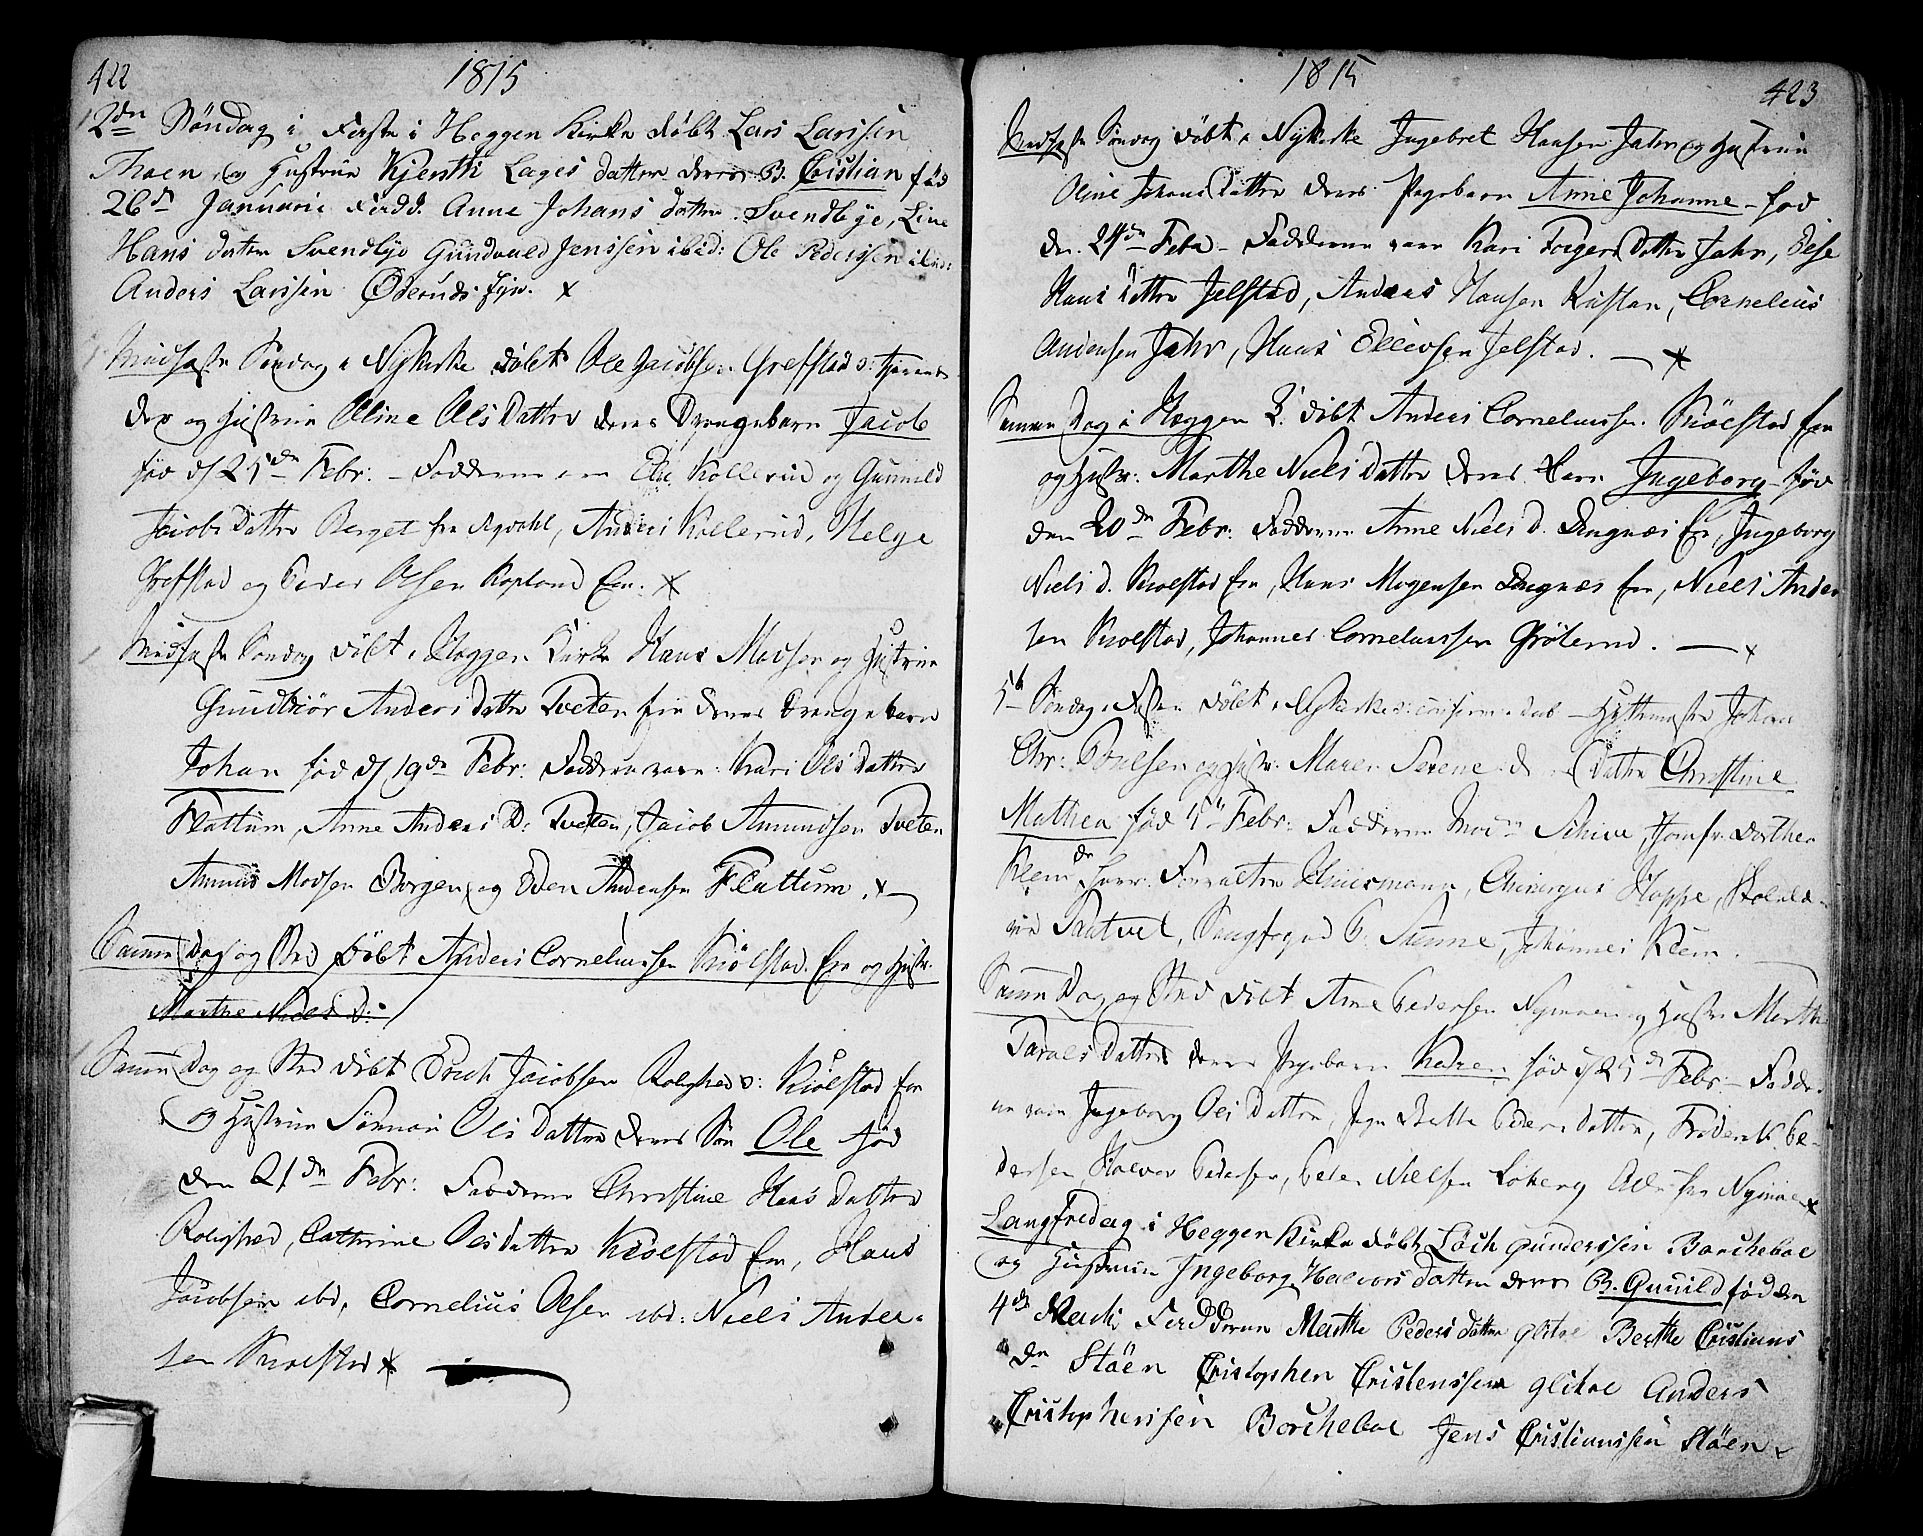 422
1815
2dn Söndag i Faste i Heggen Kirke døbt Lars Larssen
Thoen og Hustrue Kjersti Lages datter deres B. Cristian fød
26d Januarii Fadd. Anne Johans datter Svendbye, Line
Hans datter Svendbye Gundvald Jenssen ibid: Ole Pederssen ibid:
Anders Larssen Øderuds Eje. x
Midfaste Søndag i Nykirke døbt Ole Jacobsen Grefstad
og Hustrue Oline Ols Datter deres Drengebarn Jacob
fød d 25de Febr: - Fadderne Kollerud og Gunnild
Jacobs Datter Berget fra Sigdahl, Anders Kollerud, Helge
Grefstad og Peder Olsen Kopland Eie. x
Midfaste Søndag døbt i Heggen Kirke Hans Madsen og Hustrue
Gundbiør Anders Datter Tveten Eie deres Drengebarn
Johan fød d 19de Febr: Fadderne vare: Kari Ols Datter
Flattum, Anne Anders D: Tveten, Jacob Amundsen Tveten
Amund Madsen Borgen, og Eden Andersen Flattum. x
Samme Dag og Sted døbt Anders Corneliussen Skiølstad Eie og Hustr.
Marthe Niels D:
Samme Dag og Sted døbt Erich Jacobsen Rolighed Skiølstad Eie
og Hustrue Ols Datter deres Søn Ole fød
den 21de Febr: Fadderne Christine Hans Datter
Rolighed, Cathrine Ols datter Skiolstad Eie, Hans
Jacobsen ibd, Cornelius Olsen ibd: Niels Ander-
sen Skiolstad x
1815
423
Midfaste Søndag døbt i Nykirke Ingebret Hansen Jahr og Hustrue
Oline Johans Datter deres Pigebarn Anne Johanne - fød
den 24de Febr - Fadderne vare Kari Torgers Datter Jahr,
Hans Datter Jelstad, Anders Hansen, Cornelius
Andersen Jahr, Hans Ellevsen Jelstad. — x
Samme Dag i Heggen K. døbt Anders Corneliussen Skiølstad Eie
og Hustr: Marthe Niels Datter deres Barn Ingeborg - fød
den 20de Febr: Fadderne Anne Niels D. Eie, Ingeborg
Niels D. Skiolstad Eie, Hans Mogensen Eie, Niels Ander
sen Skiolstad, Johannes Corneliussen Grøterud. — x
5te Søndag i Fasten døbt i Nykirke Hyttemester Johan
Chr: Poulsen og Hustr: Maren Serene Datter Christine
Mathea fød 5te Febr: Fadderne Jomfr. Dorthea
Klem, Forvalter, Chirurgus Hoppe,
Johannes Klem.
Samme Dag og Sted døbt Arne Pedersen Nymoen og Hustr: Marthe
Datter deres Pigebarn Karen fød d 25de Febr: Fadder-
ne vare Ingeborg Ols Datter, Pige Berthe Peders Datter, Friderik Pe-
dersen, Halvor Pedersen, Peder Nielsen Loberg Alle fra Nymoen x
Langfredag i Heggen Kirke døbt Gunderssen Borchebae
og Hustrue Ingeborg Halvors datter deres B. Gunild fød den
4de Marti Fadderne Marthe Peders datter Glitre Berthe Cristians
dn Støen Cristopher Cristenssen Glitre Anders
Cristopherssen Borchebae Jens Cristianssen Støen